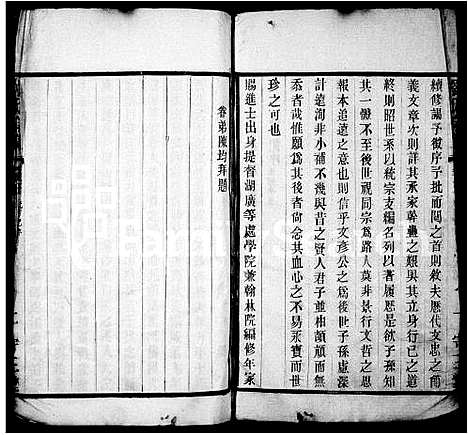 續修謁予徵序予批而閱之首則敘夫歷代文忠之
義文章次則詳其承家幹蠱之艱與其立身行已之
終則昭世系以統宗支編名列以著履歷是欲子孫知
其一體不至後世視同宗為路人莫非景行文哲之思
報本追遠之意也則信乎文彥公之為後世子孫慮深
計遠洵非小補不幾與昔之賢人君子並稱頡頏而無
忝者哉惟願為其後者尚念其血心之不易永寶而世
珍之可也
賜進士出身提督湖廣等處學院兼翰林院編修年家
眷弟陳均拜題